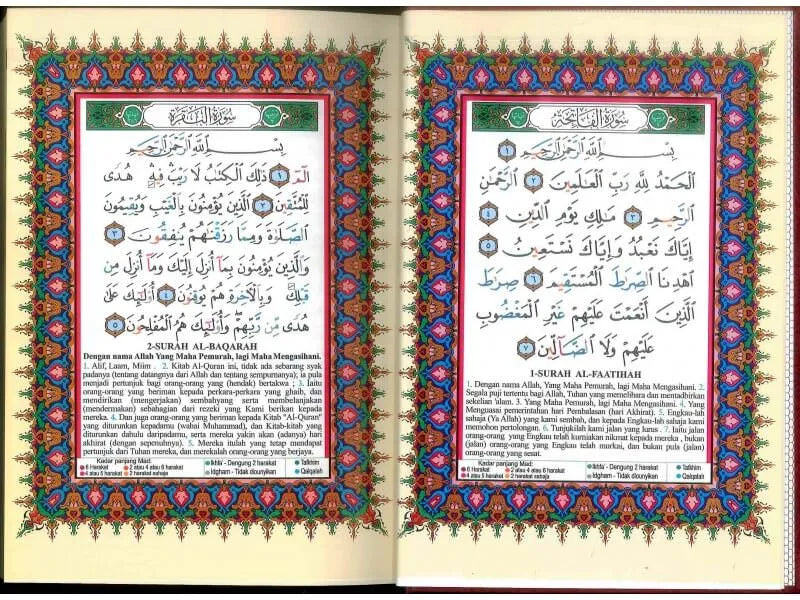 سُورَةُ الْفَاتِحَةِ
بِسْمِ ٱللَّهِ ٱلرَّحْمَٰنِ ٱلرَّحِيمِ ١
ٱلْحَمْدُ لِلَّهِ رَبِّ ٱلْعَٰلَمِينَ ٢ ٱلرَّحْمَٰنِ
ٱلرَّحِيمِ ٣ مَٰلِكِ يَوْمِ ٱلدِّينِ ٤
إِيَّاكَ نَعْبُدُ وَإِيَّاكَ نَسْتَعِينُ ٥
ٱهْدِنَا ٱلصِّرَٰطَ ٱلْمُسْتَقِيمَ ٦ صِرَٰطَ
ٱلَّذِينَ أَنْعَمْتَ عَلَيْهِمْ غَيْرِ ٱلْمَغْضُوبِ
عَلَيْهِمْ وَلَا ٱلضَّآلِّينَ ٧
1-SURAH AL-FAATIHAH
1. Dengan nama Allah, Yang Maha Pemurah, lagi Maha Mengasihani. 2.
Segala puji tertentu bagi Allah, Tuhan yang memelihara dan mentadbirkan
sekelian 'alam. 3. Yang Maha Pemurah, lagi Maha Mengasihani. 4. Yang
Menguasai pemerintahan hari Pembalasan (hari Akhirat). 5. Engkau-lah
sahaja (Ya Allah) yang kami sembah, dan kepada Engkau-lah sahaja kami
memohon pertolongan. 6. Tunjukilah kami jalan yang lurus . 7. Iaitu jalan
orang-orang yang Engkau telah kurniakan nikmat kepada mereka , bukan
(jalan) orang-orang yang Engkau telah murkai, dan bukan pula (jalan)
orang-orang yang sesat.
Kadar panjang Mad:
6 Harakat 2 atau 4 atau 6 harakat Ikhfa' - Dengung 2 harakat Tafkhim
4 atau 5 harakat 2 harakat sahaja Idgham - Tidak dibunyikan Qalqalah
سُورَةُ الْبَقَرَةِ
بِسْمِ ٱللَّهِ ٱلرَّحْمَٰنِ ٱلرَّحِيمِ
الٓمٓ ١ ذَٰلِكَ ٱلْكِتَٰبُ لَا رَيْبَ ۛ فِيهِ ۛ هُدًى
لِّلْمُتَّقِينَ ٢ ٱلَّذِينَ يُؤْمِنُونَ بِٱلْغَيْبِ وَيُقِيمُونَ
ٱلصَّلَوٰةَ وَمِمَّا رَزَقْنَٰهُمْ يُنفِقُونَ ٣
وَٱلَّذِينَ يُؤْمِنُونَ بِمَآ أُنزِلَ إِلَيْكَ وَمَآ أُنزِلَ مِن
قَبْلِكَ وَبِٱلْءَاخِرَةِ هُمْ يُوقِنُونَ ٤ أُو۟لَٰٓئِكَ عَلَىٰ
هُدًى مِّن رَّبِّهِمْ ۖ وَأُو۟لَٰٓئِكَ هُمُ ٱلْمُفْلِحُونَ ٥
2-SURAH AL-BAQARAH
Dengan nama Allah Yang Maha Pemurah, lagi Maha Mengasihani.
1. Alif, Laam, Miim . 2. Kitab Al-Quran ini, tidak ada sebarang syak
padanya (tentang datangnya dari Allah dan tentang sempurnanya); ia pula
menjadi pertunjuk bagi orang-orang yang (hendak) bertakwa ; 3. Iaitu
orang-orang yang beriman kepada perkara-perkara yang ghaib, dan
mendirikan (mengerjakan) sembahyang serta membelanjakan
(mendermakan) sebahagian dari rezeki yang Kami berikan kepada
mereka. 4. Dan juga orang-orang yang beriman kepada Kitab "Al-Quran"
yang diturunkan kepadamu (wahai Muhammad), dan Kitab-kitab yang
diturunkan dahulu daripadamu, serta mereka yakin akan (adanya) hari
akhirat (dengan sepenuhnya). 5. Mereka itulah yang tetap mendapat
pertunjuk dari Tuhan mereka, dan merekalah orang-orang yang berjaya.
Kadar panjang Mad:
6 Harakat 2 atau 4 atau 6 harakat Ikhfa' - Dengung 2 harakat Tafkhim
4 atau 5 harakat 2 harakat sahaja Idgham - Tidak dibunyikan Qalqalah